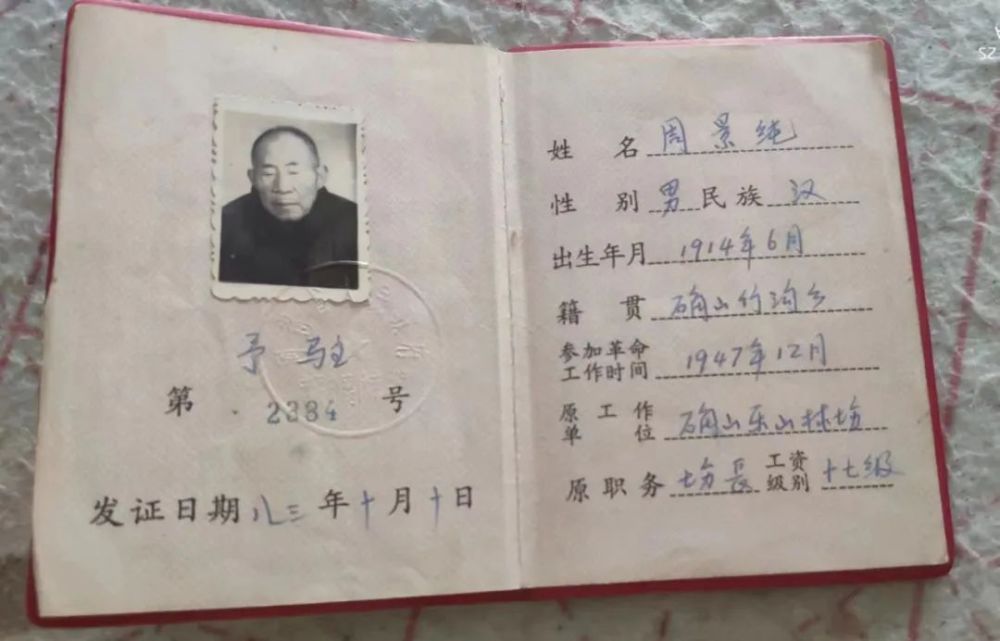 予 驻
第 2384 号
发证日期 八三 年 十 月 十 日
姓 名 周景纯
性 别 男 民族 汉
出生年月 1914年6月
籍 贯 确山竹沟乡
参加革命
工作时间 1947年12月
原工作
单 位 确山乐山林场
原职务 场長 工资
级别 十七级